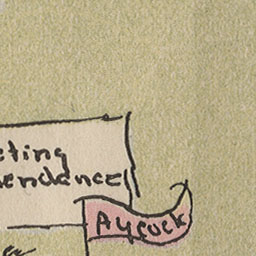 eting
endance
Aycock